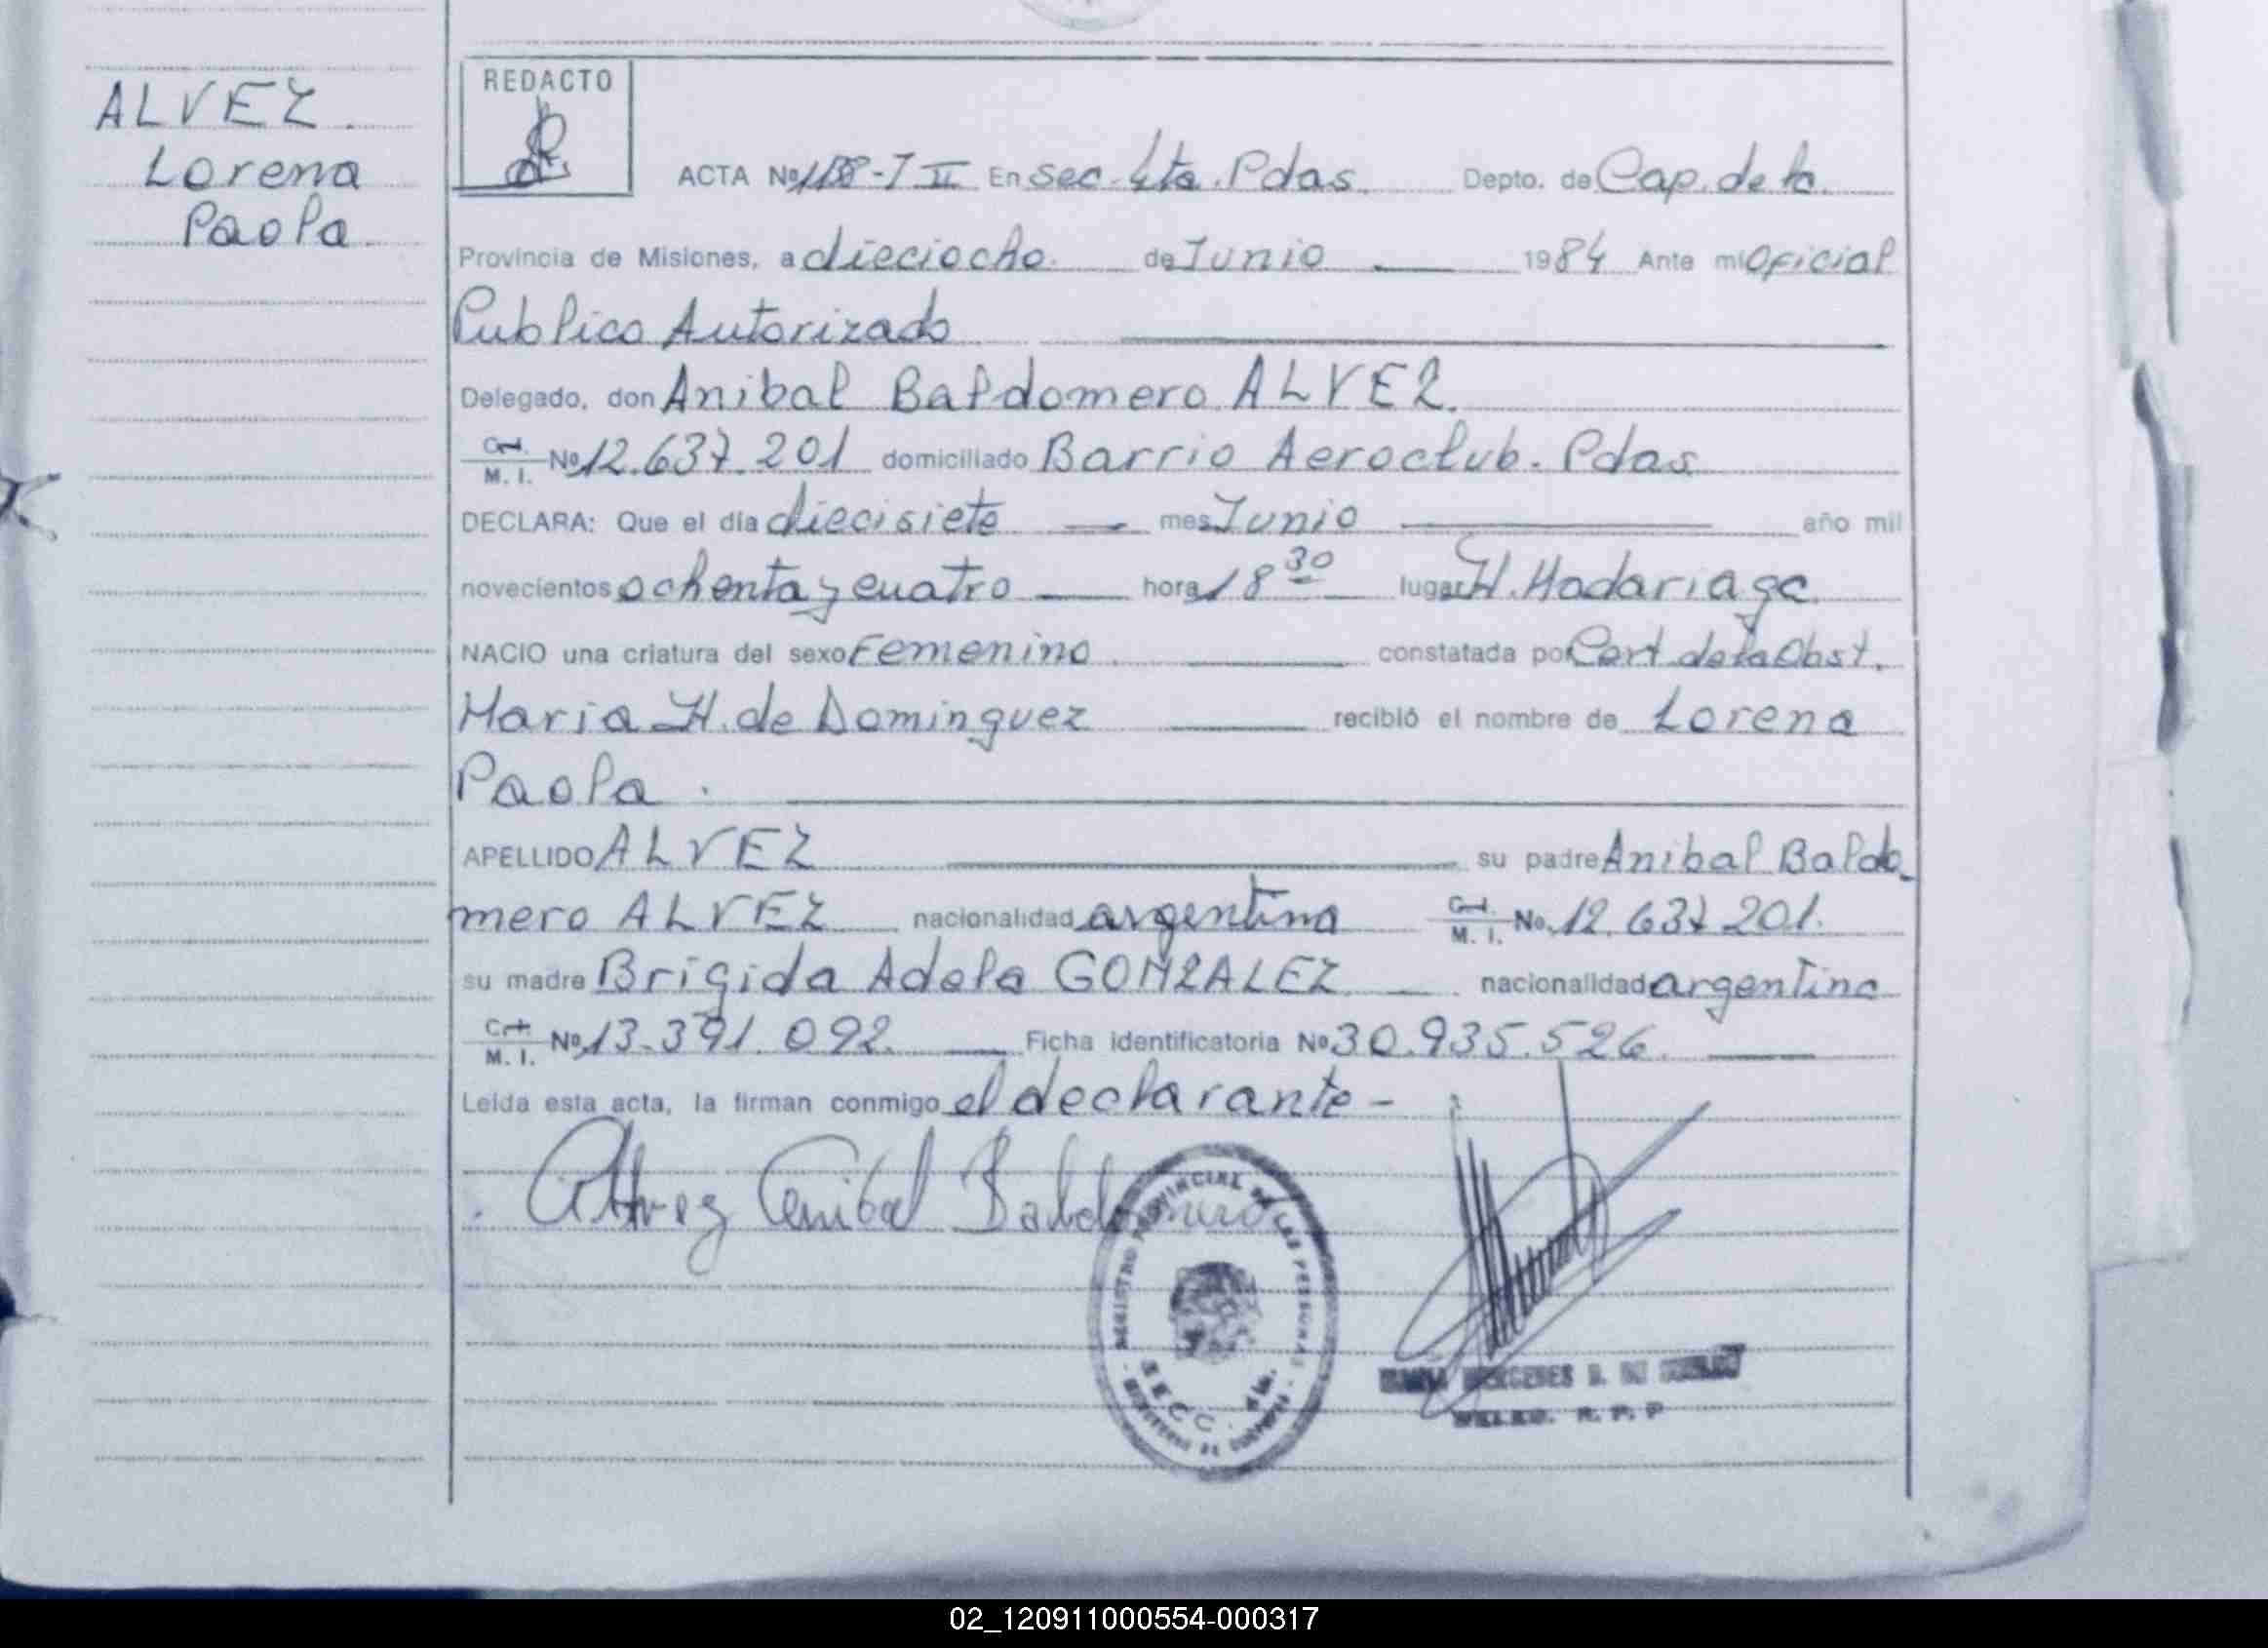 ALVEZ.
Lorena
Paola.
REDACTO
ACTA Nº -T II En Sec. 4ta. Pdas. Depto. de Cap. de la
Provincia de Misiones, a dieciocho. de Junio 1984 Ante mi Oficial
Publico Autorizado
Delegado, don Anibal Baldomero ALVEZ.
M. I. Nº 12.637.201 domiciliado Barrio Aeroclub. Pdas.
DECLARA: Que el día diecisiete mes Junio año mil
novecientos ochenta y cuatro hora 18 30 lugar H. Madariaga
NACIO una criatura del sexo Femenino. constatada por Cert. de la Obst.
Maria H. de Dominguez recibió el nombre de Lorena
Paola.
APELLIDO ALVEZ su padre Anibal Baldo
mero ALVEZ nacionalidad argentina M. I. No. 12.637.201.
su madre Brigida Adela GONZALEZ nacionalidad argentina
M. I. Nº 13.391.092. Ficha identificatoria Nº 30.935.526.
Leída esta acta, la firman conmigo el declarante -
Alvez Anibal Baldomero
REGISTRO PROVINCIAL DE LAS PERSONAS
SECC. 4ta.
MERCEDES
R. P. P
02_120911000554-000317